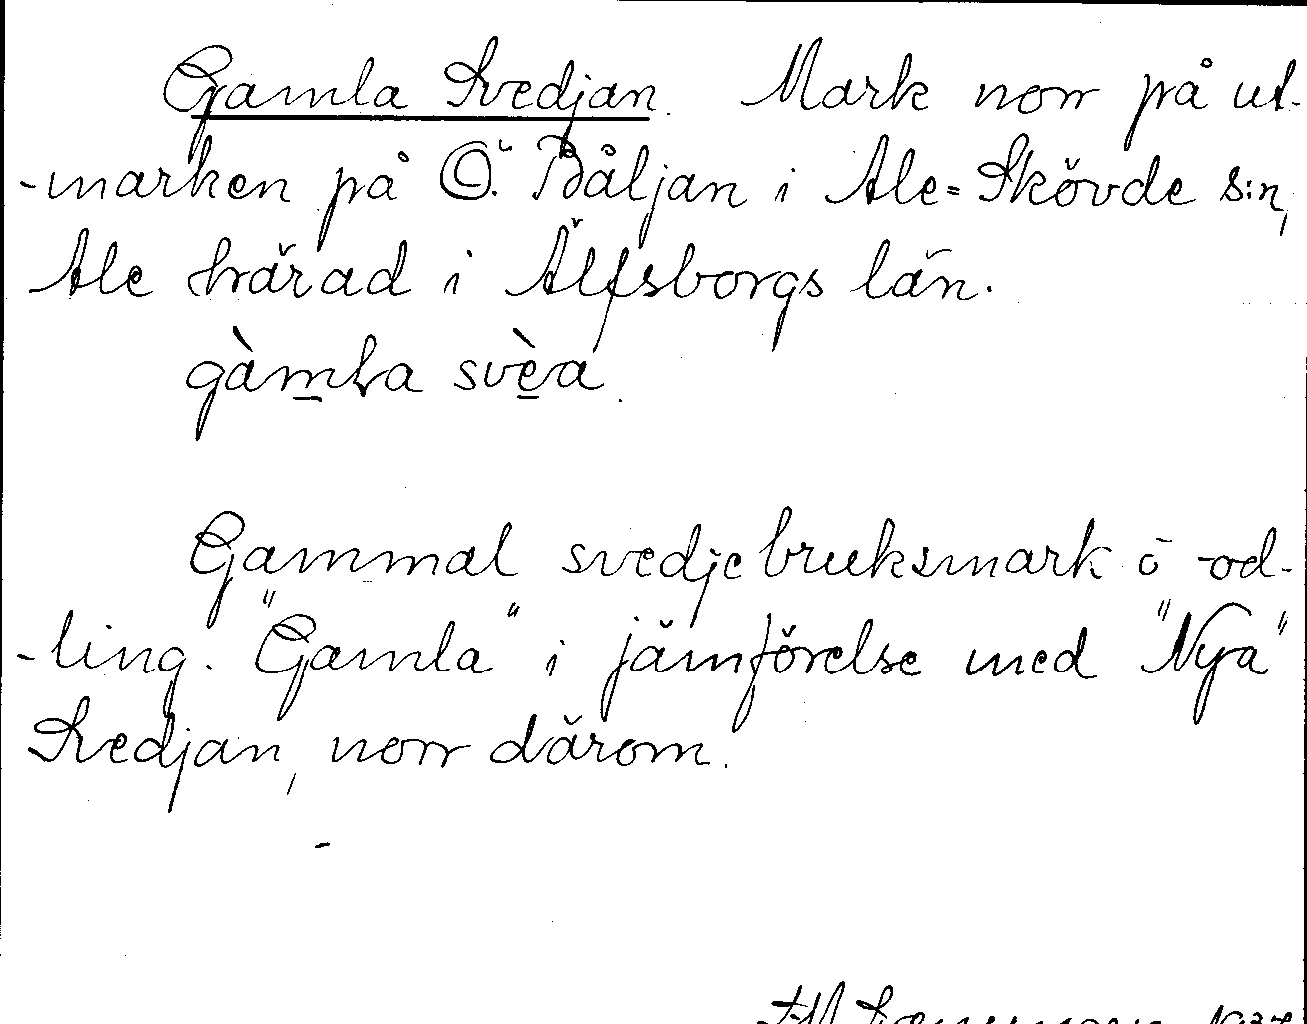 Gamla Svedjan. Mark norr på ut-
-marken på Ö. Båljan i Ale=Skövde s:n,
Ale härad i Älfsborgs län.
gàm̲ɫa svèa̲
Gammal svedjebruksmark o -od-
-ling. "Gamla" i jämförelse med "Nya"
Svedjan, norr därom.